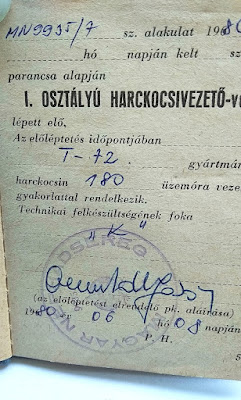 MN9935/7 sz. alakulat 1980
hó napján kelt sz
parancsa alapján
I. OSZTÁLYÚ HARCKOCSIVEZETŐ-v
lépett elő.
Az előléptetés időpontjában
T-72. gyártmán
harckocsin 180 üzemóra veze
gyakorlattal rendelkezik.
Technikai felkészültségének foka
„K”
(az előléptetést elrendelő pk. aláírása)
1980 év 06 hó 08 napján
P. H.
5